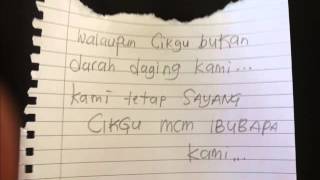 walaupun Cikgu bukan
darah daging kami...
kami tetap SAYANG
CIKGU mcm IBUBAPA
kami...